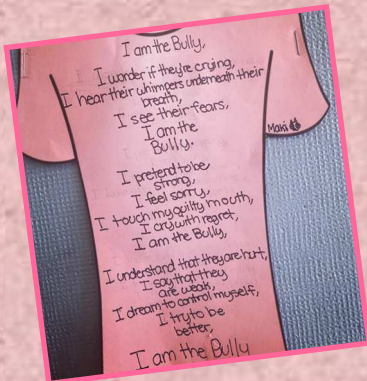 I am the Bully,
I wonder if they're crying,
I hear their whimpers underneath their
breath,
I see their fears,
I am the
Bully.
Maxi
I pretend to be
strong,
I feel sorry,
I touch my guilty mouth,
I cry with regret,
I am the Bully,
I understand that they are hurt,
I say that they
are weak,
I dream to control myself,
I try to be
better,
I am the Bully